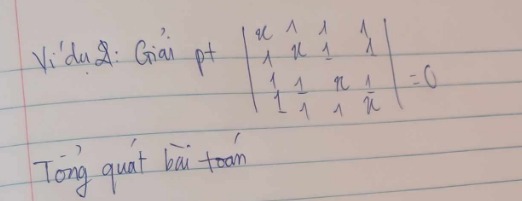 Ví dụ 2: Giải pt | x 1 1 1 |
| 1 x 1 1 |
| 1 1 x 1 | = 0
| 1 1 1 x |
Tổng quát bài toán